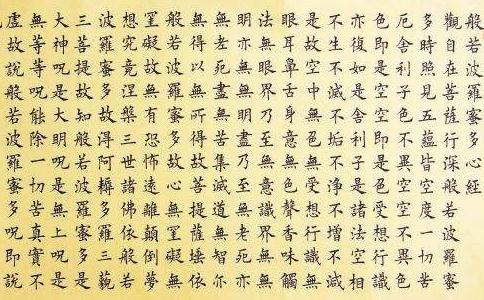 般若波羅蜜多心經
觀自在菩薩行深般若波羅蜜
多時照見五蘊皆空度一切苦
厄舍利子色不異空空不異色
色即是空空即是色受想行識
亦復如是舍利子是諸法空相
不生不滅不垢不淨不增不減
是故空中無色無受想行識無
眼耳鼻舌身意無色聲香味觸
法無眼界乃至無意識界無無
明亦無無明盡乃至無老死亦
無老死盡無苦集滅道無智亦
無得以無所得故菩提薩埵依
般若波羅蜜多故心無罣礙無
罣礙故無有恐怖遠離顛倒夢
想究竟涅槃三世諸佛依般若
波羅蜜多故得阿耨多羅三藐
三菩提故知般若波羅蜜多是
大神呪是大明呪是無上呪是
無等等呪能除一切苦真實不
虛故說般若波羅蜜多呪即說